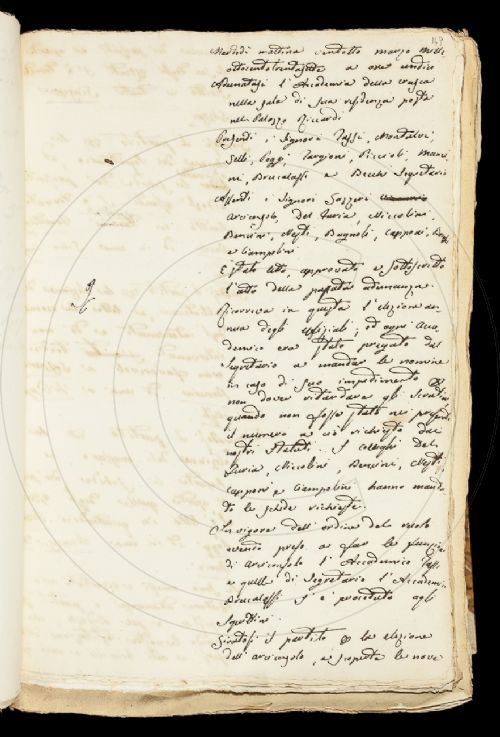 149
Martedì mattina ventotto marzo mille
ottocento trentasette a ore undici
Adunatasi l'Accademia della crusca
nella sala di sua residenza posta
nel Palazzo Riccardi
Presenti i Signori Tassi, Montalvi,
Selli, Poggi, Targioni, Piccioli, Manni
ni, Brucalassi e Becchi Segretario
Assenti i Signori Gazzeri
Arciconsolo, Del Furia, Niccolini,
Bencini, Nesti, Bagnoli, Capponi,
e Ciampolini
È stato letto, approvato e sottoscritto
l'atto della passata adunanza.
Ricorreva in questa l'elezione an-
nua degli Ufiziali; ed ogni Acca
demico era stato pregato dal
Segretario a mandar le nomine
in caso di suo impedimento
non dover ritardare gli Scrutini
quando non fosse stato nei presenti
il numero a ciò richiesto dai
nostri Statuti. I Colleghi Del
Furia, Niccolini, Bencini, Nesti,
Capponi e Ciampolini hanno manda
to le schede richieste.
In vigore dell'ordine del ruolo
avendo preso a far le funzioni
di Arciconsolo l'Accademico Tassi,
e quelle di Segretario l'Accademico
Brucalassi s'è proceduto agli
Squittini.
Giratosi il partito la elezione
dell'arciconsolo, e scoperte le nove